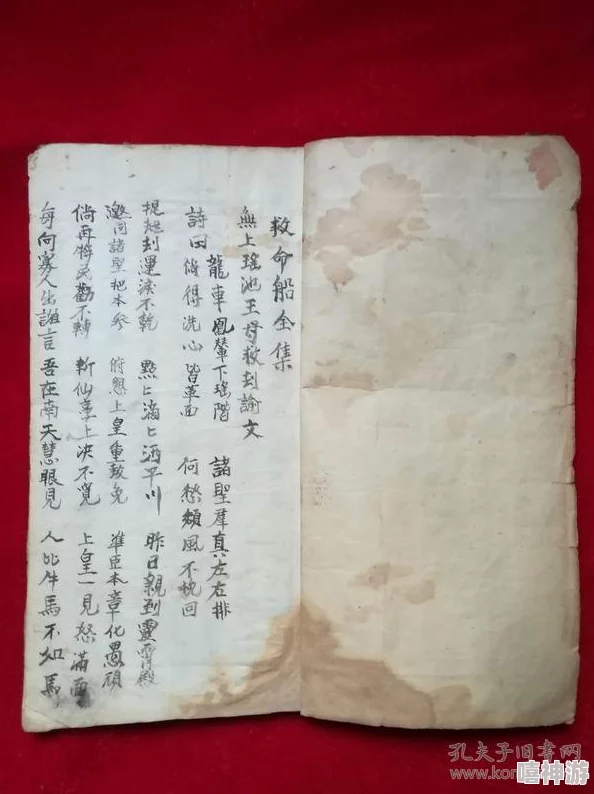 救命船全集
無上瑤池王母救刦諭文
龍車鳳輦下瑤階 諸聖羣真左右排
詩曰 修得洗心皆革面 何愁頹風不挽回
提起刦運淚不乾 點匕滴匕洒平川 昨日親到靈霄殿
邀同諸聖把本參 俯懇上皇重赦免 準臣本章化愚頑
倘再將民勸不轉 斬仙臺上决不寬 上皇一見怒滿面
每向寡人出誑言 吾在南天慧眼見 人比牛馬不如馬
孔夫子旧书网
www.kon
嘻神游